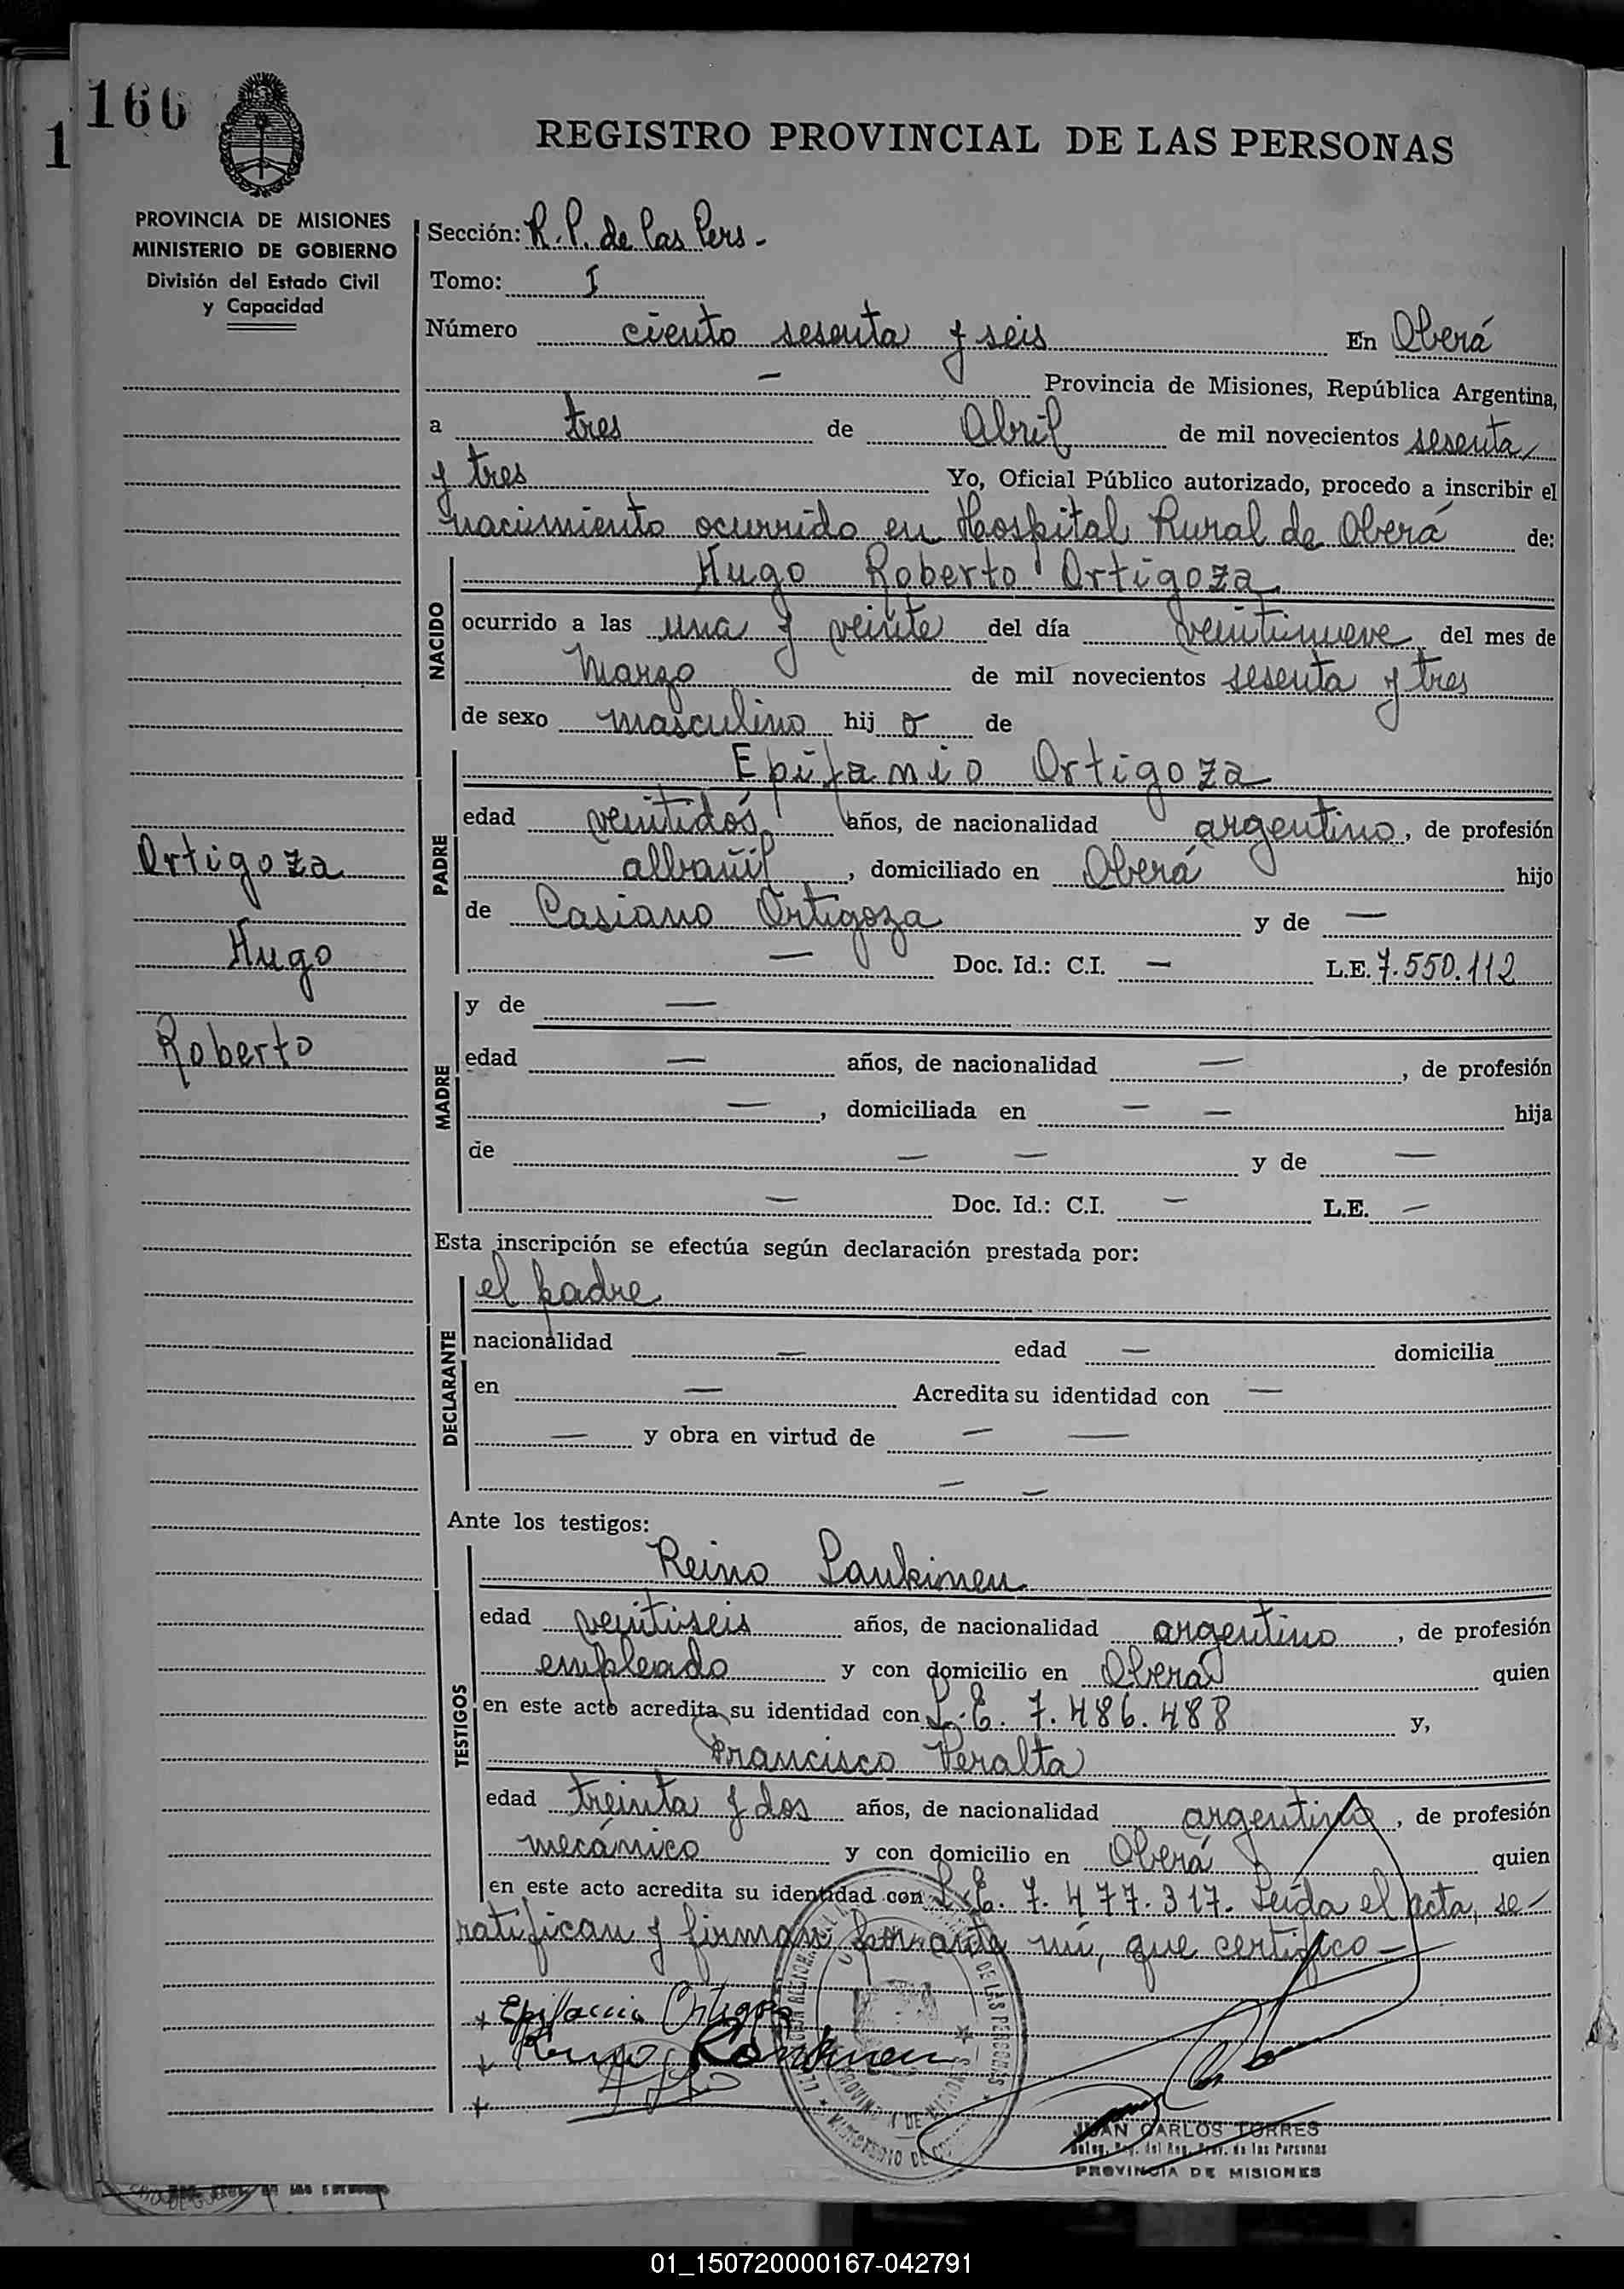 166
1
REGISTRO PROVINCIAL DE LAS PERSONAS
PROVINCIA DE MISIONES
MINISTERIO DE GOBIERNO
División del Estado Civil
y Capacidad
Ortigoza
Hugo
Roberto
Sección: R.P. de las Pers -
Tomo: I
Número ciento sesenta y seis En Oberá
— Provincia de Misiones, República Argentina,
a tres de Abril de mil novecientos sesenta
y tres Yo, Oficial Público autorizado, procedo a inscribir el
nacimiento ocurrido en Hospital Rural de Oberá de:
NACIDO
Hugo Roberto Ortigoza
ocurrido a las una y veinte del día veintinueve del mes de
Marzo de mil novecientos sesenta y tres
de sexo masculino hij o de
PADRE
Epifanio Ortigoza
edad veintidós años, de nacionalidad argentino, de profesión
albañil, domiciliado en Oberá hijo
de Casiano Ortigoza y de —
— Doc. Id.: C.I. — L.E. 7.550.112
MADRE
y de —
edad — años, de nacionalidad —, de profesión
—, domiciliada en — — hija
de — — y de —
— Doc. Id.: C.I. — L.E. —
Esta inscripción se efectúa según declaración prestada por:
DECLARANTE
el padre
nacionalidad — edad — domicilia
en — Acredita su identidad con —
— y obra en virtud de — —
— —
Ante los testigos:
TESTIGOS
Reino Laukimen
edad veintiseis años, de nacionalidad argentino, de profesión
empleado y con domicilio en Oberá quien
en este acto acredita su identidad con L.E. 7.486.488 y,
Francisco Peralta
edad treinta y dos años, de nacionalidad argentino, de profesión
mecánico y con domicilio en Oberá quien
en este acto acredita su identidad con L.E. 7.477.317. Leída el acta, se
ratifican y firman ante mí, que certifico -
JUAN CARLOS TORRES
Deleg. Reg. del Reg. Prov. de las Personas
PROVINCIA DE MISIONES
01_150720000167-042791